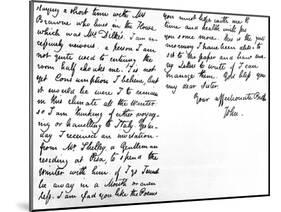 staying a short time with Mrs
Brawne who lives in the House
which was Mr Dilke's. I am
excessively nervous: a person I am
not quite used to entering the
room half choaks me. 'Tis not
yet Consumption I believe, but
it would be were I to remain
in this climate all the Winter:
so I am thinking of either voyag-
ing or travelling to Italy. Yester-
day I received an invitation
from Mr Shelley, a Gentleman
residing at Pisa, to spend the
Winter with him: if I go I must
be away in a Month or even
less. I am glad you like the Poems
you must hope with me that
time and health will produce
you some more. This is the first
morning I have been able to
sit to the paper and have many
Letters to write if I can
manage them. God bless you
my dear Sister.
Your affectionate Brother
John.